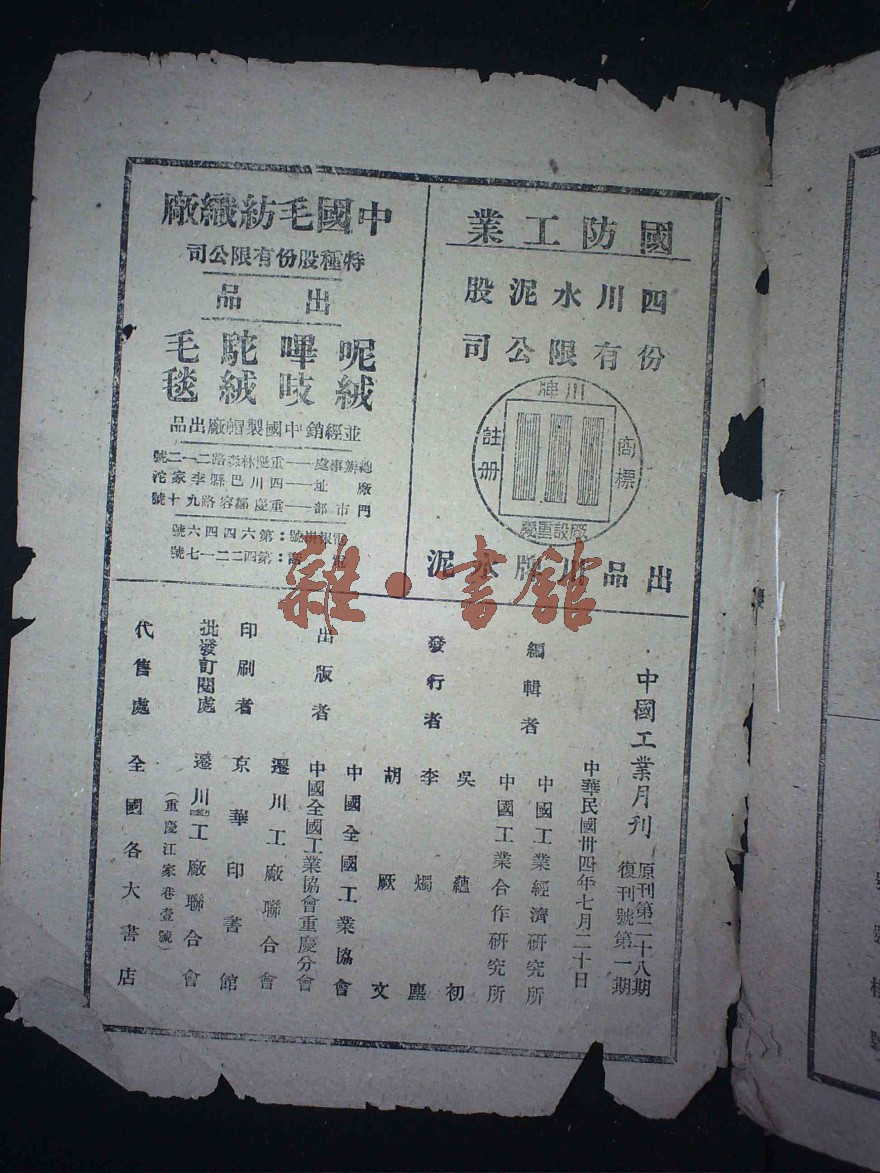 國防工業
四川水泥股
份有限公司
川牌
商標
註册
廠設重慶
出品川牌水泥
中國毛紡織廠
特種股份有限公司
出品
呢嗶駝毛
絨吱絨毯
並經銷中國製帽廠出品
總辦事處——重慶林森路二一二號
廠址——四川巴縣李家沱
門市部——重慶鄒容路九十號
電報掛號：第六四四六號
電話：第四二二一七號
中國工業月刊
原刊第二十八期
復刊號第一期
中華民國卅四年七月二十日
編輯者
中國工業經濟研究所
中國工業合作研究所
發行者
吳蘊初
李燭塵
胡厥文
出版者
中國全國工業協會
中國全國工業協會重慶分會
遷川工廠聯合會
印刷者
京華印書館
批發訂閱處
遷川工廠聯合會
（重慶江家巷壹號）
代售處
全國各大書店
雜·書館